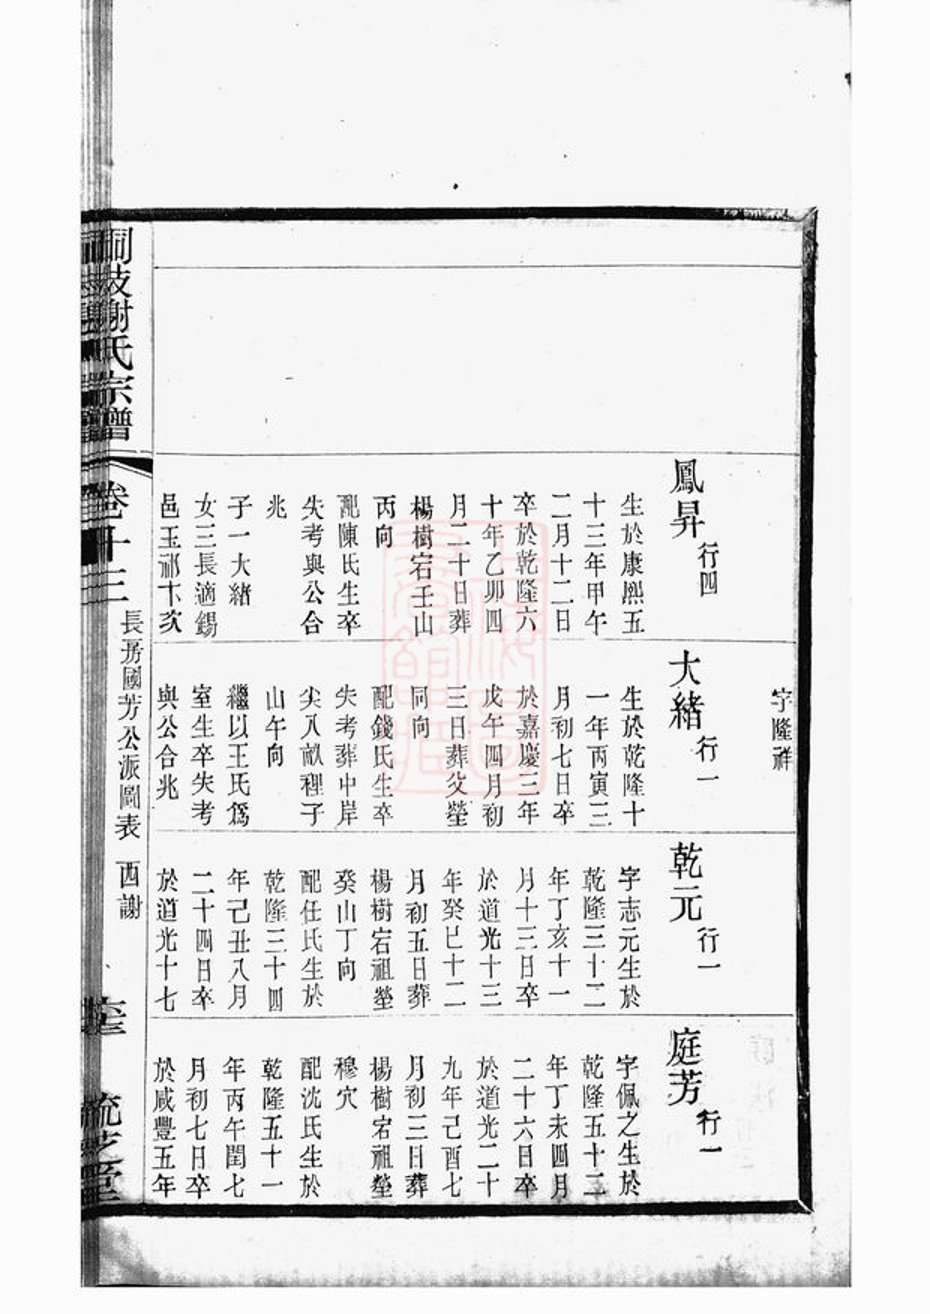 字隆祥
鳳昇 行四
生於康熙五
十三年甲午
二月十二日
卒於乾隆六
十年乙卯四
月二十日葬
楊樹宕壬山
丙向
配陳氏生卒
失考與公合
兆
子一大緒
女三長適錫
邑玉祁卞次
大緒 行一
生於乾隆十
一年丙寅三
月初七日卒
於嘉慶三年
戊午四月初
三日葬父塋
同向
配錢氏生卒
失考葬中岸
尖入畝裡子
山午向
繼以王氏爲
室生卒失考
與公合兆
乾元 行一
字志元生於
乾隆三十二
年丁亥十一
月十三日卒
於道光十三
年癸巳十二
月初五日葬
楊樹宕祖塋
癸山丁向
配任氏生於
乾隆三十四
年己丑八月
二十四日卒
於道光十七
庭芳 行一
字佩之生於
乾隆五十二
年丁未四月
二十六日卒
於道光二十
九年己酉七
月初三日葬
楊樹宕祖塋
穆穴
配沈氏生於
乾隆五十一
年丙午閏七
月初七日卒
於咸豐五年
謝氏宗譜
卷十三
長房國芳公派圖表 西謝